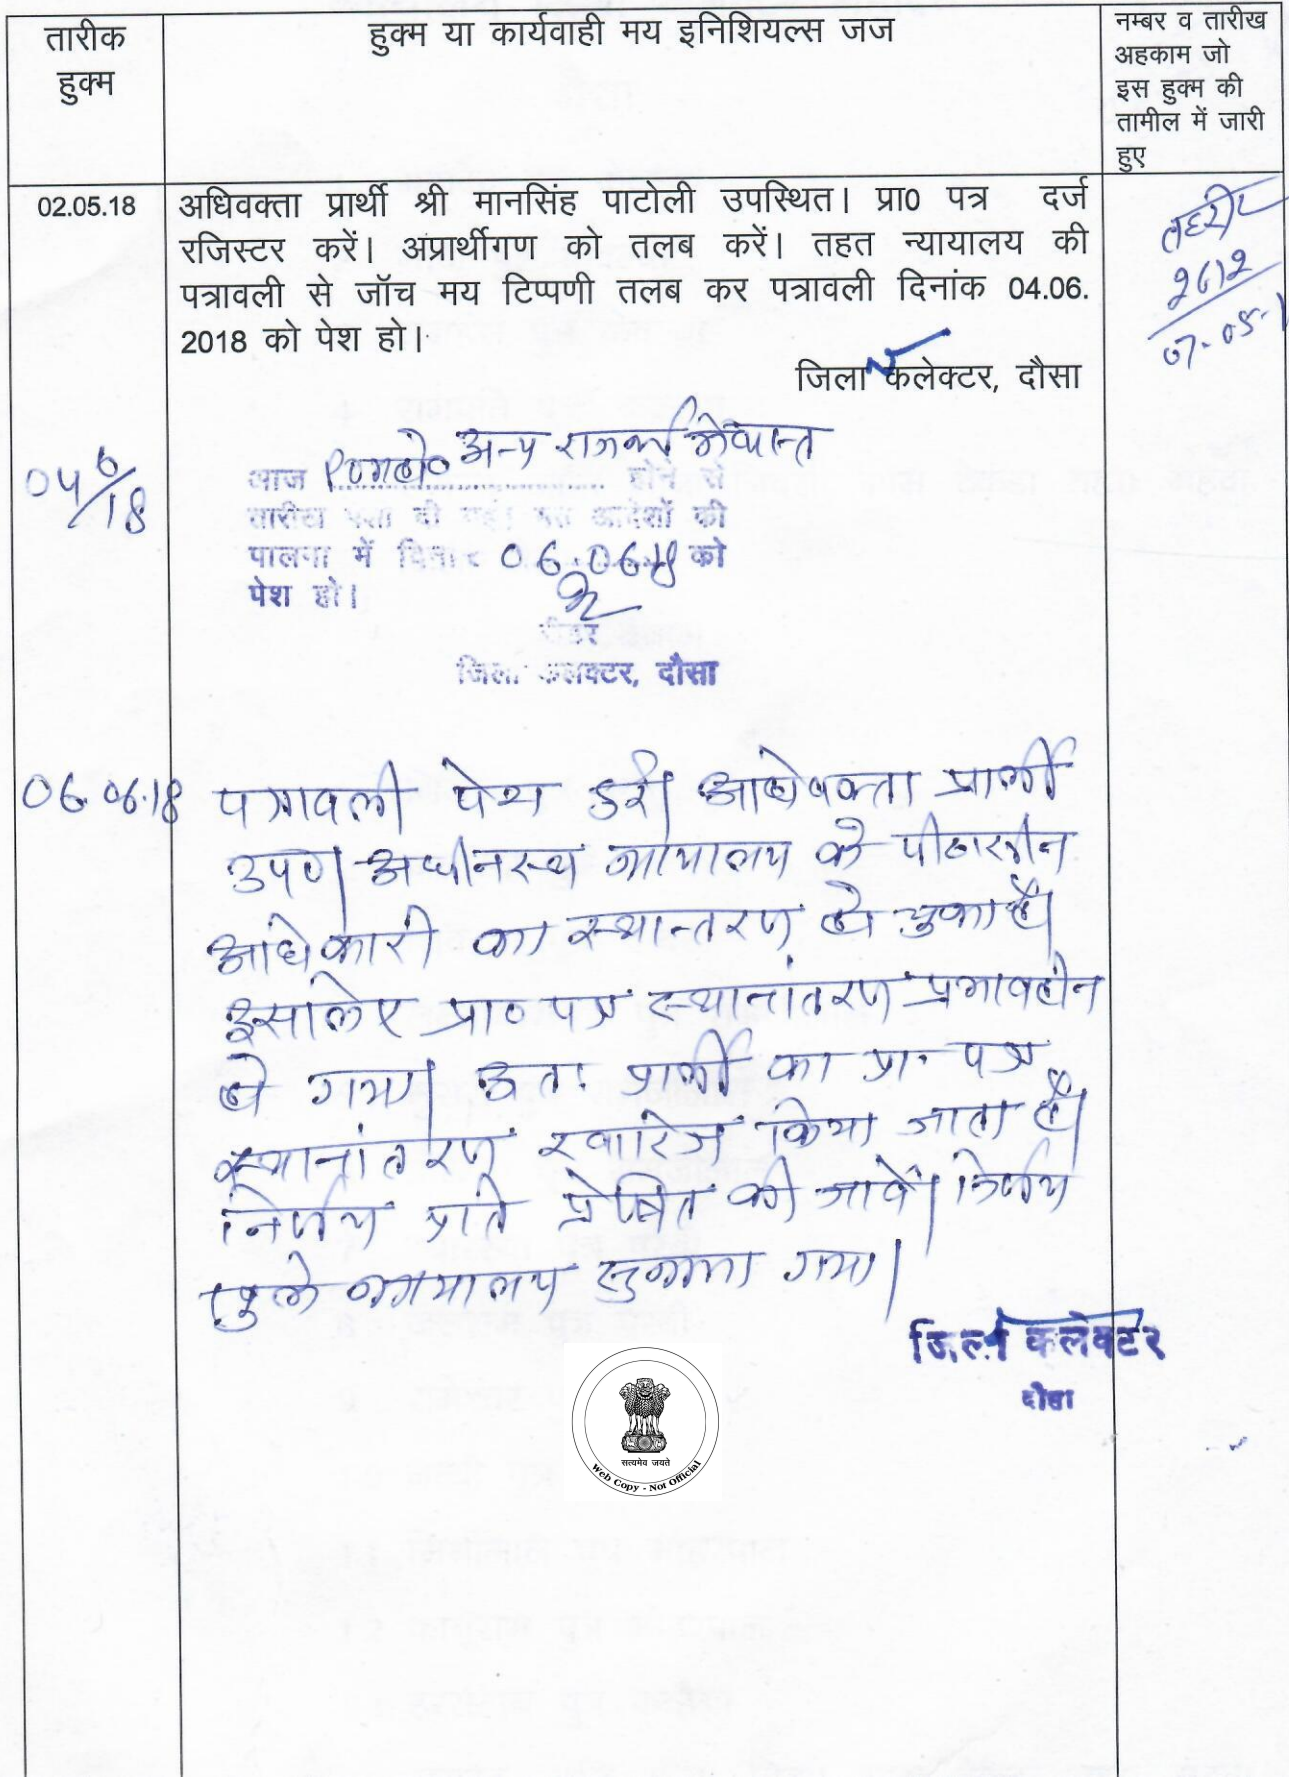 तारीक
हुक्म
हुक्म या कार्यवाही मय इनिशियल्स जज
नम्बर व तारीख
अहकाम जो
इस हुक्म की
तामील में जारी
हुए
02.05.18
अधिवक्ता प्रार्थी श्री मानसिंह पाटोली उपस्थित। प्रा0 पत्र दर्ज
रजिस्टर करें। अंप्रार्थीगण को तलब करें। तहत न्यायालय की
पत्रावली से जॉच मय टिप्पणी तलब कर पत्रावली दिनांक 04.06.
2018 को पेश हो।
जिला कलेक्टर, दौसा
तहरीर
2612
07-05-1
04/6/18
अन्य राजकार्य में व्यस्त
आज होने से
तारीख पेशी दी गई। गत आदेशों की
पालना में दिनांक 06.06.18 को
पेश हो।
रीडर
जिला कलक्टर, दौसा
06.06.18
पत्रावली पेश हुई। अधिवक्ता प्रार्थी
उप0। अधीनस्थ न्यायालय के पीठासीन
अधिकारी का स्थान्तरण हो चुका है।
इसलिए प्रा० पत्र स्थानांतरण प्रभावहीन
हो गया। अतः प्रार्थी का प्रा. पत्र
स्थानांतरण खारिज किया जाता है।
निर्णय प्रति प्रेषित की जावें। निर्णय
खुले न्यायालय सुनाया गया।
जिला कलेक्टर
दौसा
सत्यमेव जयते
Web Copy - Not Official